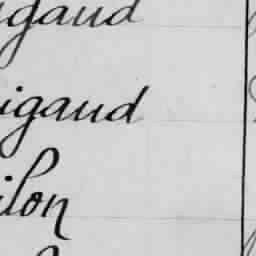 igaud
igaud
ilon